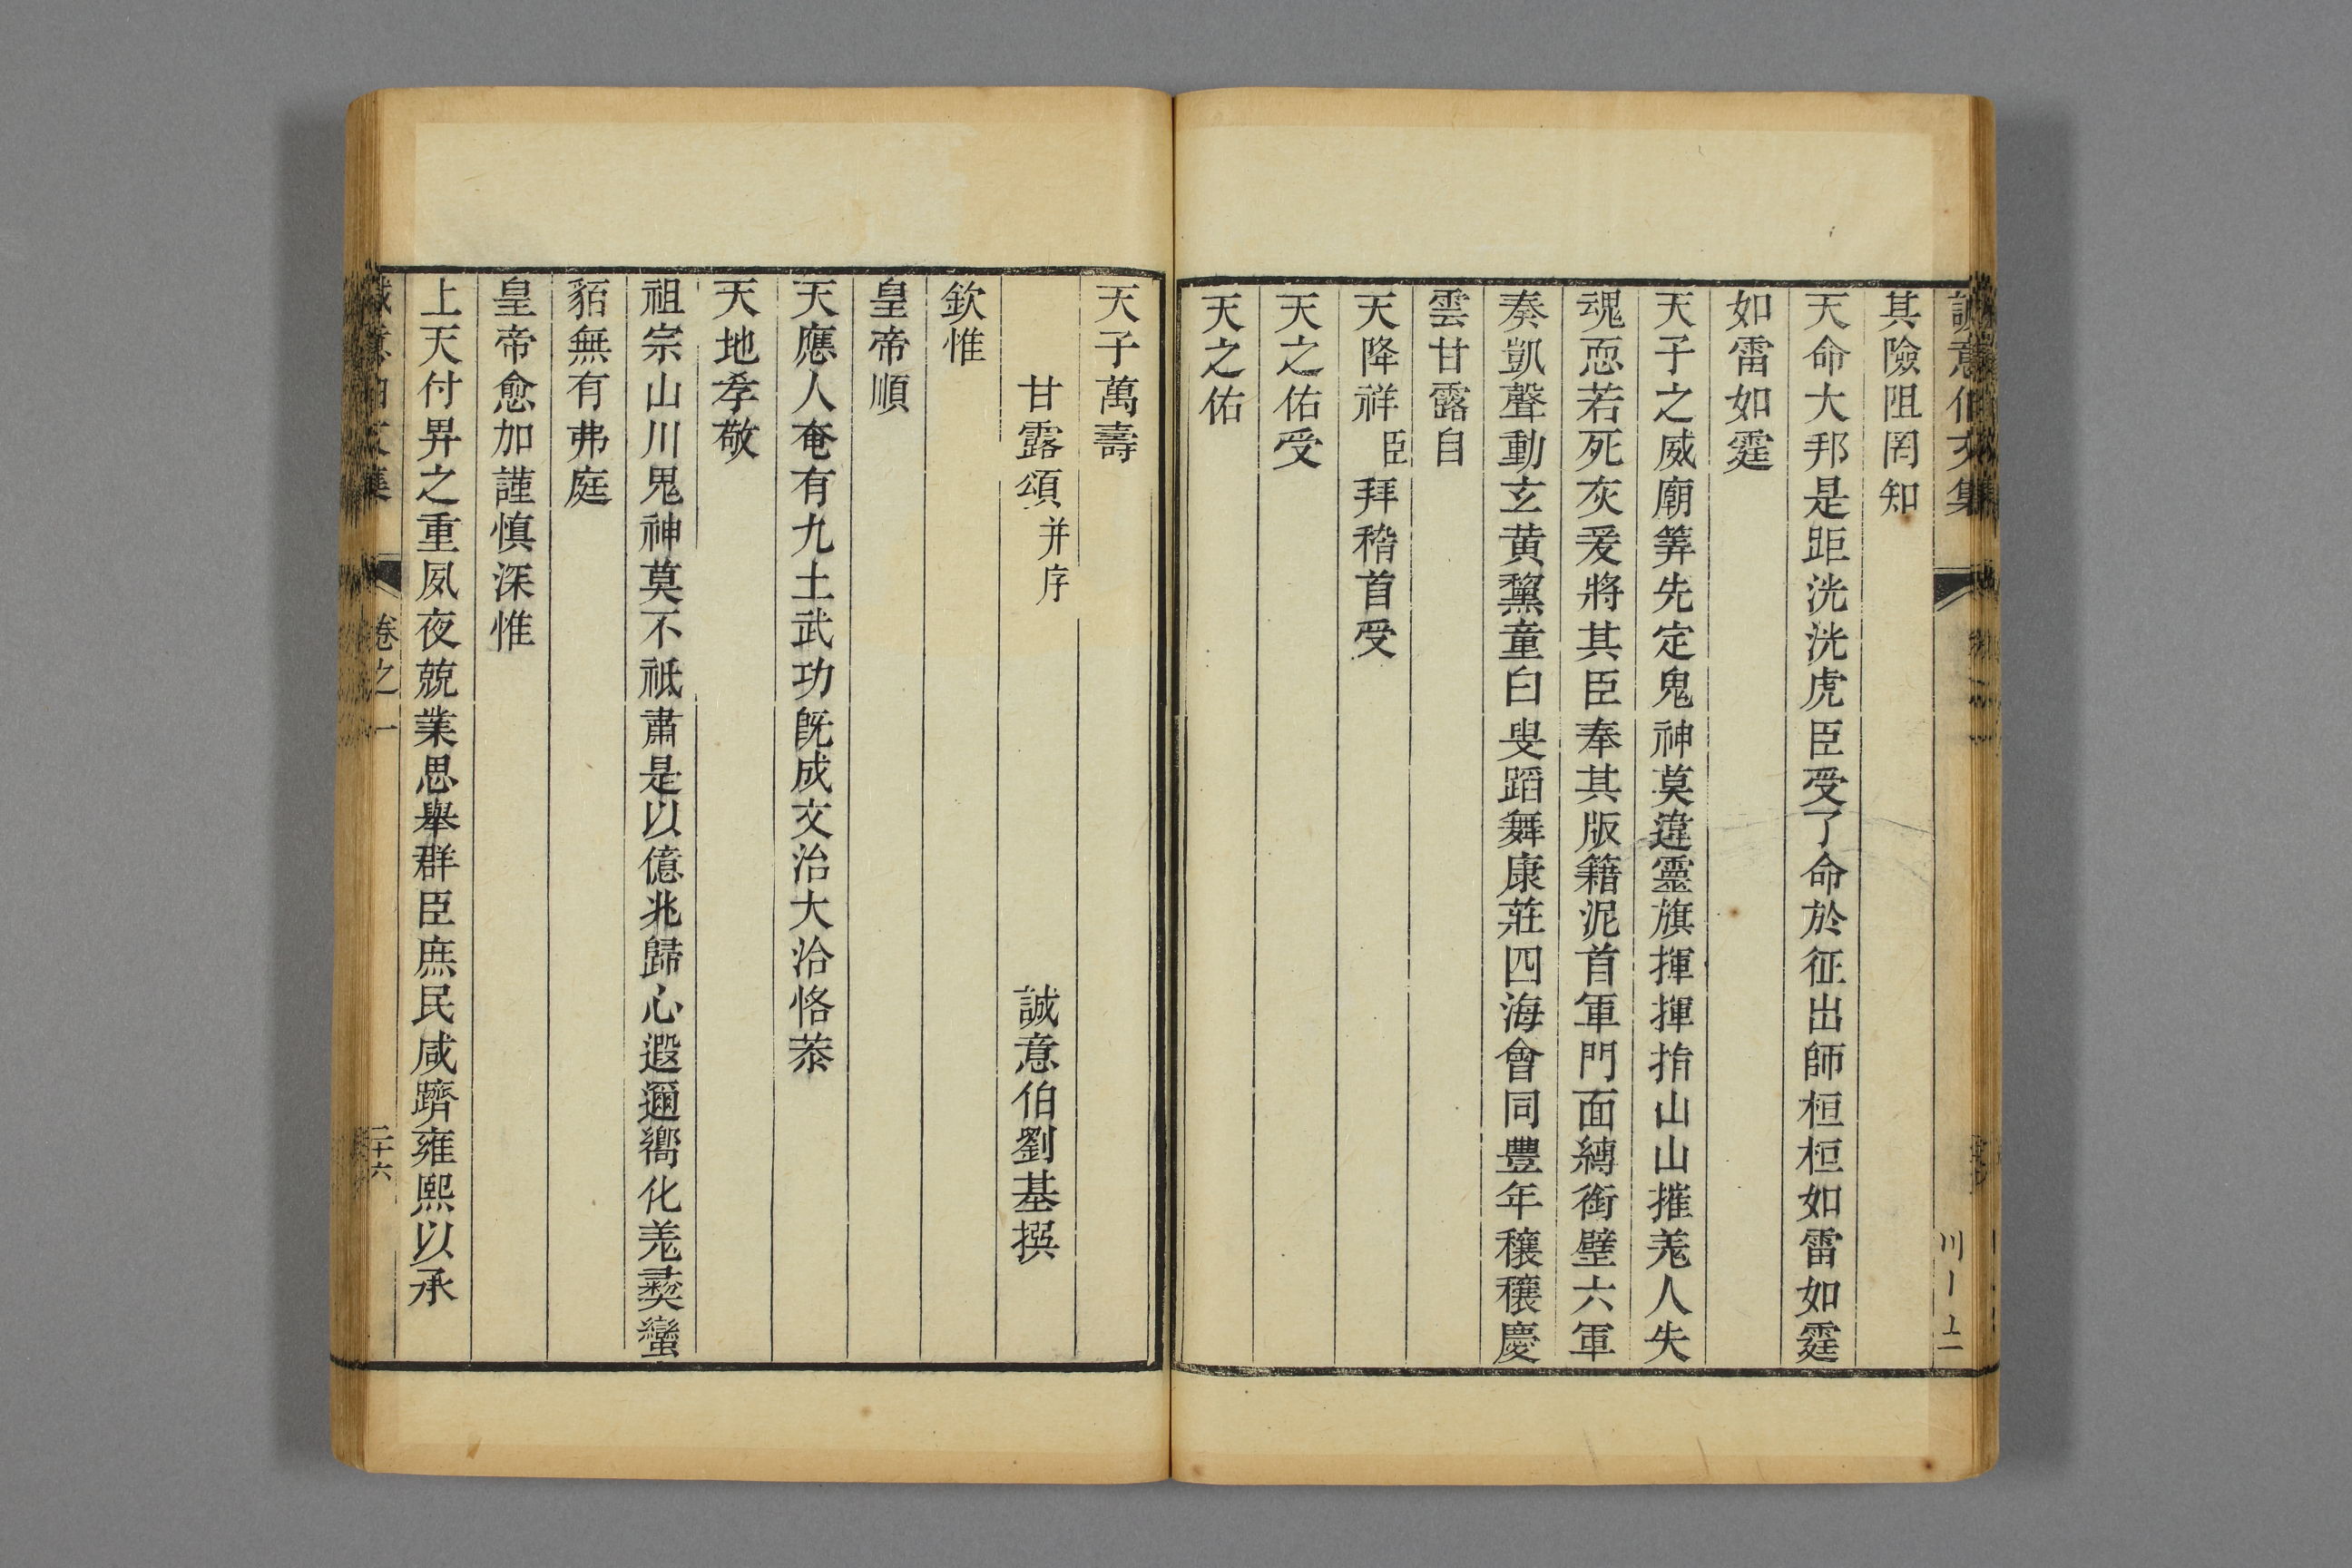 誠意伯文集
其險阻罔知
天命大邦是距洸洸虎臣受了命於征出師桓桓如雷如霆
如雷如霆
天子之威廟筭先定鬼神莫違靈旗揮揮指山山摧羗人失
魂恧若死灰爰將其臣奉其版籍泥首軍門面縛銜璧六軍
奏凱聲動玄黄黧童白叟蹈舞康莊四海會同豐年穰穰慶
雲甘露自
天降祥臣拜稽首受
天之佑受
天之佑
天子萬壽
甘露頌并序 誠意伯劉基撰
欽惟
皇帝順
天應人奄有九土武功旣成文治大洽恪恭
天地孝敬
祖宗山川鬼神莫不祗肅是以億兆歸心遐邇嚮化羗彛蠻
貊無有弗庭
皇帝愈加謹慎深惟
上天付畀之重夙夜兢業思舉群臣庶民咸躋雍熙以承
誠意伯文集 卷之一 二十六